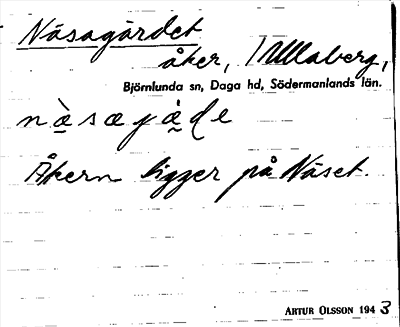 Näsagärdet
åker, Ullaberg,
Björnlunda sn, Daga hd, Södermanlands län.
Åkern ligger på Näset.
ARTUR OLSSON 1943